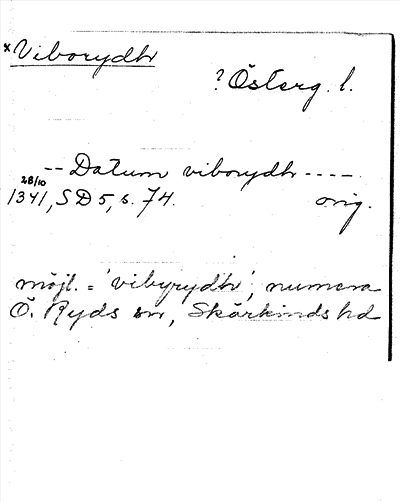 × Viborydh
? Österg. l.
-- Datum viborydh ----
28/10
1341, SD 5, s. 74. orig.
möjl. = 'vibyrydh', numera
Ö. Ryds sn, Skärkinds hd